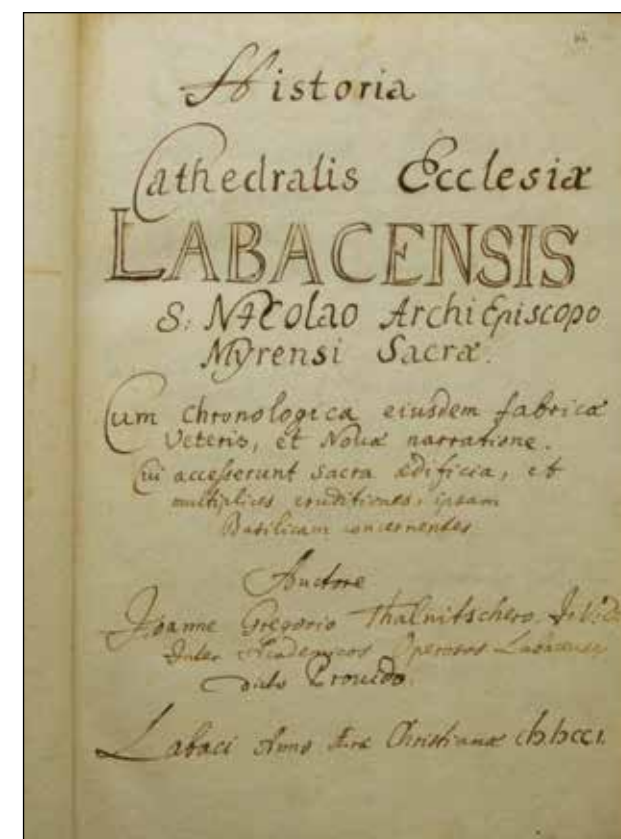 Historia
Cathedralis Ecclesiæ
LABACENSIS
S: Nicolao ArchiEpiscopo
Myrensi Sacræ.
Cum Chronologica eiusdem fabricæ
Veteris, et Novæ narratione.
Cui accesserunt Sacra ædificia, et
multiplices eruditiones, ipsam
Basilicam concernentes
Auctore
Joanne Gregorio Thalnitschero
Inter Academicos Operosos Labacenses
dicto Provido.
Labaci Anno Æræ Christianæ